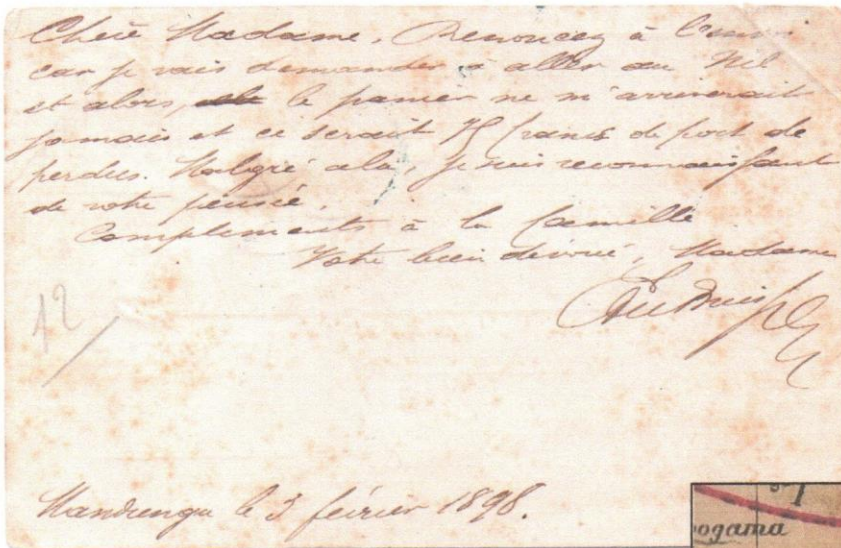 Chère Madame, Renoncez à l'envoi
car je vais demander à aller au Nil
et alors, le panier ne m'arriverait
jamais et ce serait 75 francs de port de
perdus. Malgré cela, je suis reconnaissant
de votre pensée.
Compliments à la famille
Votre bien dévoué, Madame
12
Mandungu le 3 février 1898.
ogama